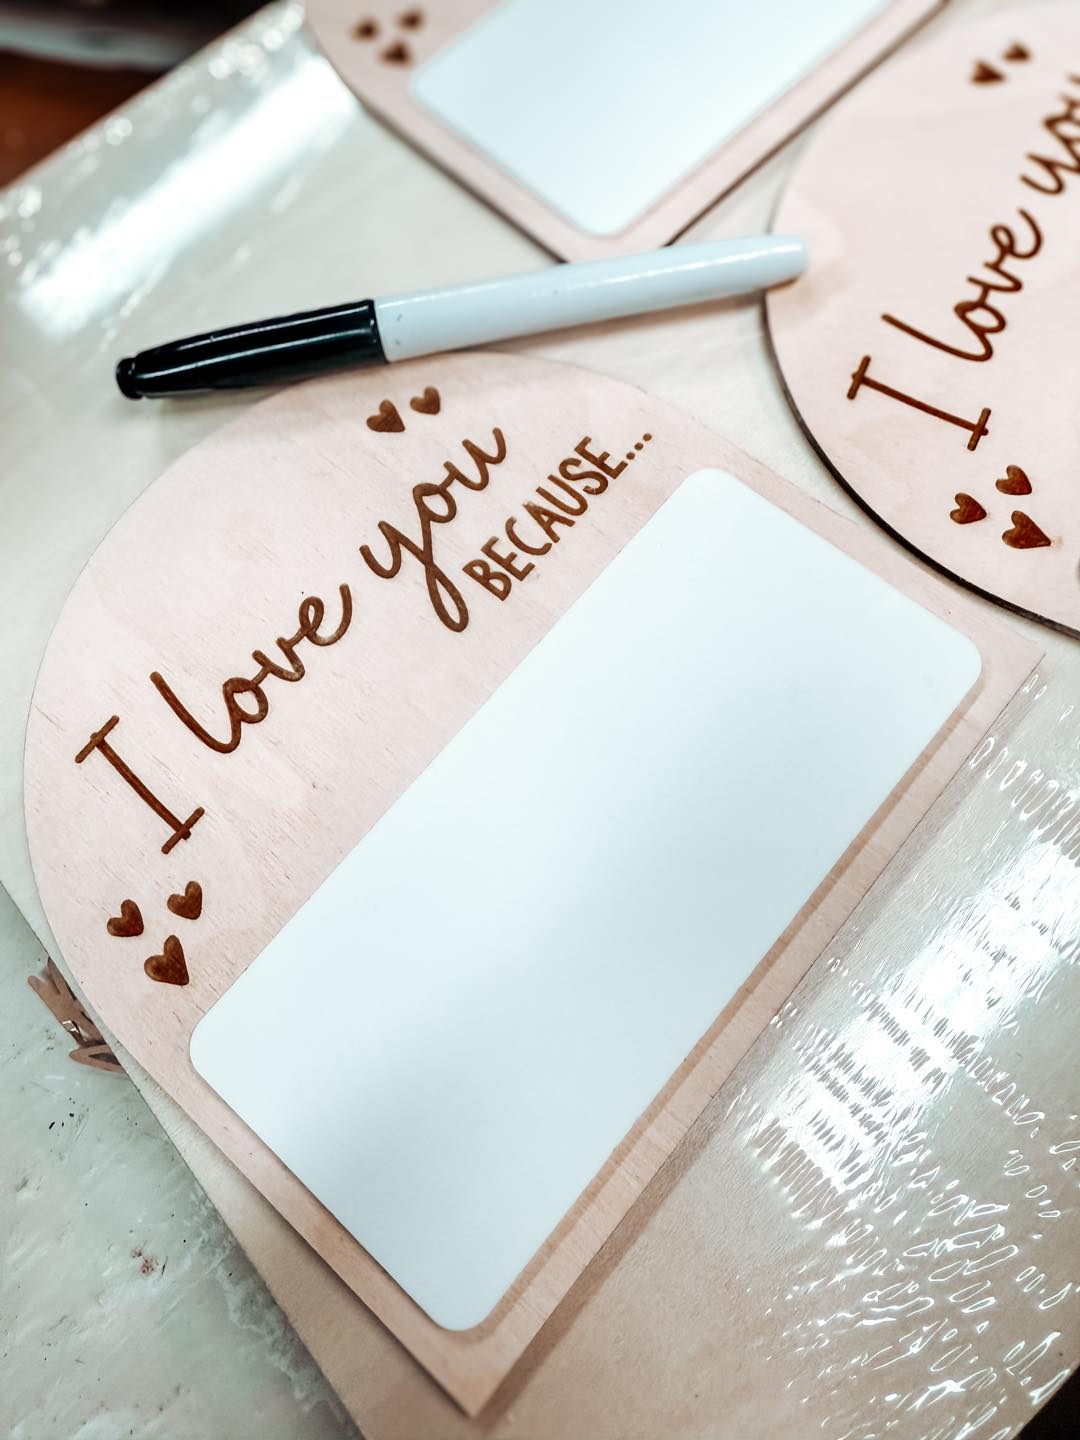 I love you
BECAUSE...
I love you